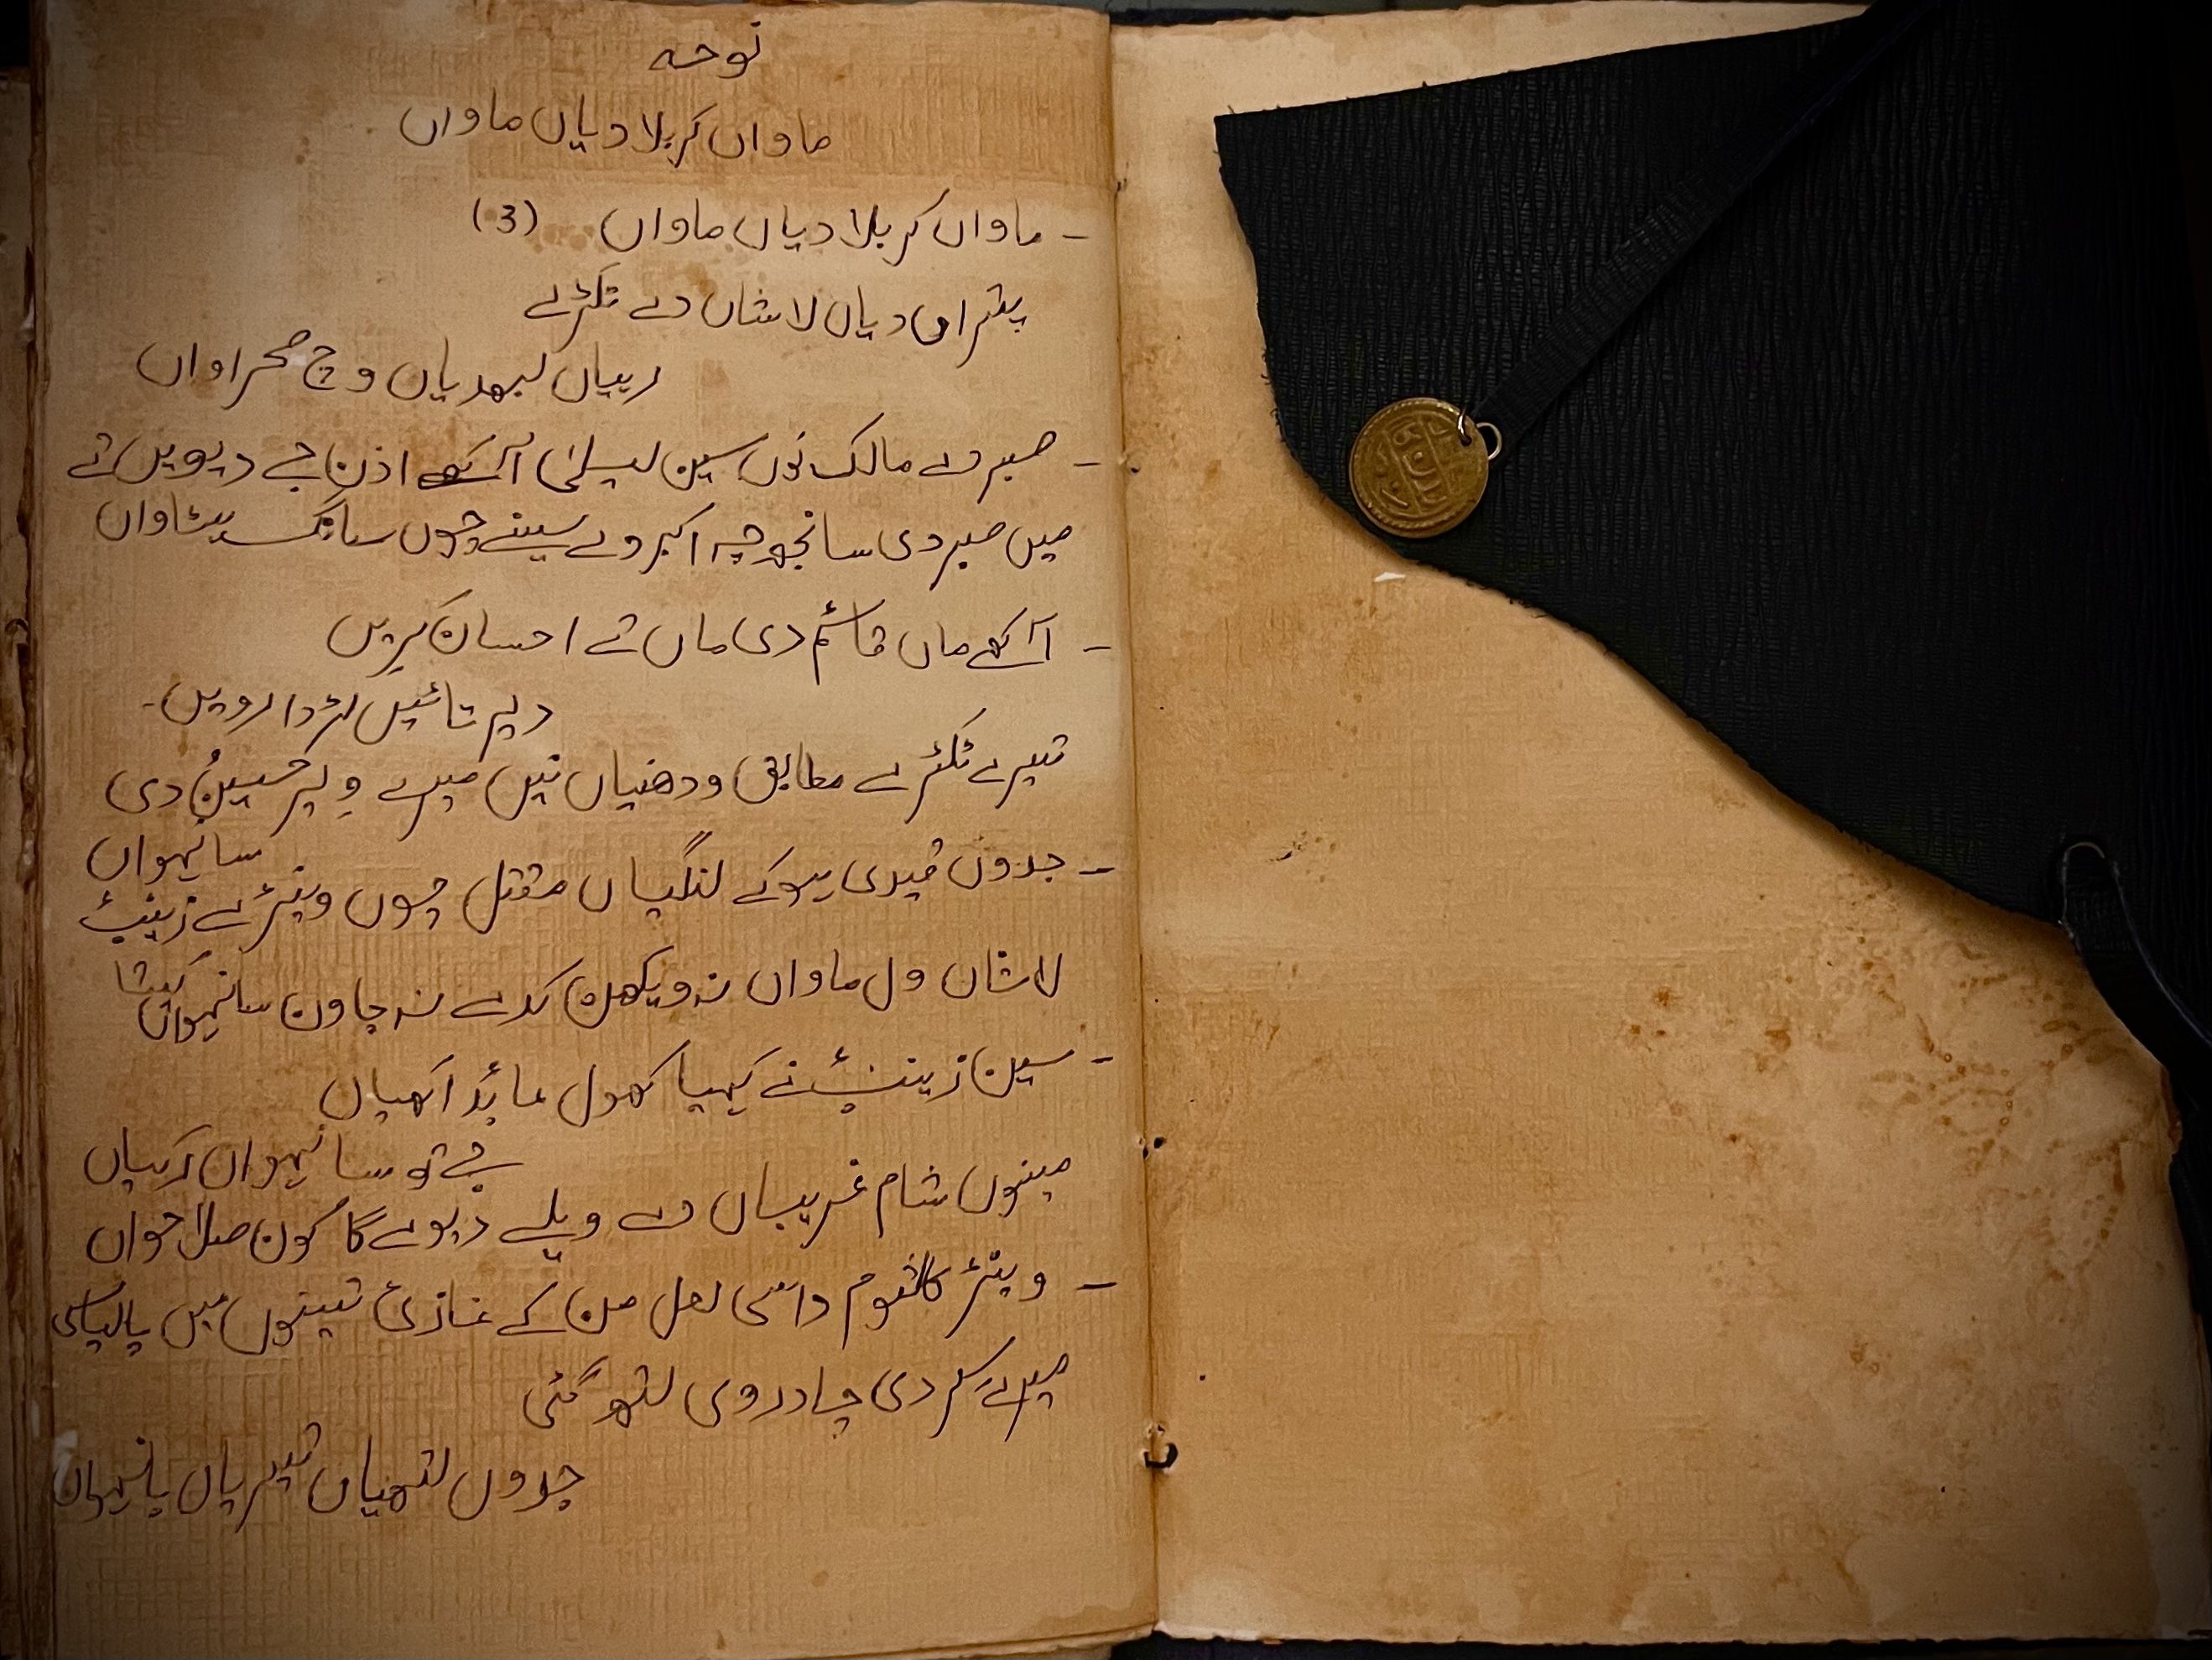 نوحہ
ماواں کربلا دیاں ماواں
- ماواں کربلا دیاں ماواں (3)
پتراں دیاں لاشاں دے ٹکڑے
رہیاں لبھدیاں وچ صحراواں
- صبر دے مالک نوں سین لیلیٰ آکھے اذن جے دیویں تے
میں صبر دی سانجھ چہ اکبر دے سینے چوں سانگ ہٹاواں
- آکھے ماں قاسمؑ دی ماں تے احسان کریں
دیر تائیں لڑدا رویں۔
تیرے ٹکڑے مطابق ودھنیاں نیں میرے ویر حسینؑ دی
سانہواں
- جدوں قیدی ہو کے لنگیاں مقتل چوں ویڑے زینبؑ
کیتا
لاشاں ول ماواں نہ ویکھن کدے نہ جاون سانہواں
- سین زینبؑ نے کہیا کھول عابدؑ اکھیاں
جے تو سانہواں رکیاں
مینوں شام غریباں دے ویلے دیوے گا کون صلاحواں
- ویڑ کلثوم دا سی لعل من کے غازیؑ تینوں میں پالیا سی
میرے سر دی چادر وی لتھ گئی
جدوں لتھیاں تیریاں بانہواں